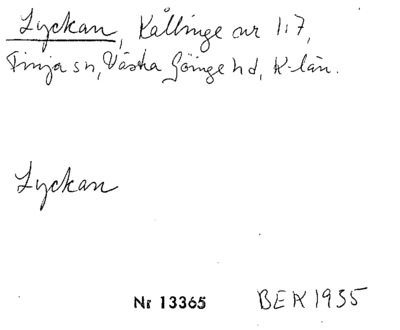 Lyckan, Kållinge nr 1:7,
Finja sn, Västra Göinge hd, K-län.
Lyckan
Nr 13365 BEK 1935